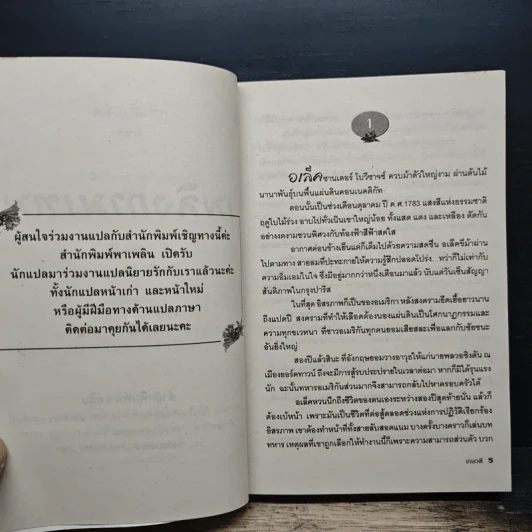 ผู้สนใจร่วมงานแปลกับสำนักพิมพ์เชิญทางนี้ค่ะ
สำนักพิมพ์พาเพลิน เปิดรับ
นักแปลมาร่วมงานแปลนิยายรักกับเราแล้วนะคะ
ทั้งนักแปลหน้าเก่า และหน้าใหม่
หรือผู้มีฝีมือทางด้านแปลภาษา
ติดต่อมาคุยกันได้เลยนะคะ
1
อเล็คซานเดอร์ โบวีซาจซ์ ควบม้าตัวใหญ่งาม ผ่านต้นไม้
นานาพันธุ์บนพื้นแผ่นดินคอนเนคติกัท
ตอนนั้นเป็นช่วงเดือนตุลาคม ปี ค.ศ.1783 แสงสีแห่งธรรมชาติ
ฤดูใบไม้ร่วง อาบไปทั่วเนินเขาใหญ่น้อย ทั้งแสด แดง และเหลือง ตัดกัน
อย่างงดงามชวนพิศวงกับท้องฟ้าสีฟ้าสดใส
อากาศค่อนข้างเย็นแต่ก็เต็มไปด้วยความสดชื่น อเล็คขี่ม้าผ่าน
ไปตามทาง สายลมที่ปะทะกายให้ความรู้สึกปลอดโปร่ง ทว่าก็ไม่เท่ากับ
ความอิ่มเอมในใจ ซึ่งมีอยู่มากกว่าหนึ่งเดือนมาแล้ว นับแต่วันเซ็นสัญญา
สันติภาพในกรุงปารีส
ในที่สุด อิสรภาพก็เป็นของอเมริกา หลังสงครามยืดเยื้อยาวนาน
ถึงแปดปี สงครามที่ทำให้เลือดต้องนองแผ่นดินเป็นโศกนาฏกรรมและ
ความทุกขเวทนา ที่ชาวอเมริกันทุกคนยอมเสียสละเพื่อแลกกับชัยชนะ
อันยิ่งใหญ่
สองปีแล้วสินะ ที่อังกฤษยอมวางอาวุธให้แก่นายพลวอชิงตัน ณ
เมืองยอร์คทาวน์ ถึงจะมีการสู้รบประปรายในเวลาต่อมา หากก็มิได้รุนแรง
นัก ฉะนั้นทหารอเมริกันส่วนมากจึงสามารถกลับไปหาครอบครัวได้
อเล็คหวนนึกถึงชีวิตของตนเองระหว่างสองปีสุดท้ายนั่น แล้วก็
ต้องเบ้หน้า เพราะมันเป็นชีวิตที่ต่อสู้ตลอดช่วงแห่งการปฏิวัติเรียกร้อง
อิสรภาพ เขาต้องทำหน้าที่ทั้งสายลับสอดแนม บางครั้งบางคราวก็เล่นบท
ทหาร เหตุผลที่เขาถูกเลือกให้ทำงานนี้ก็เพราะความสามารถส่วนตัว บวก
เกษวลี 5